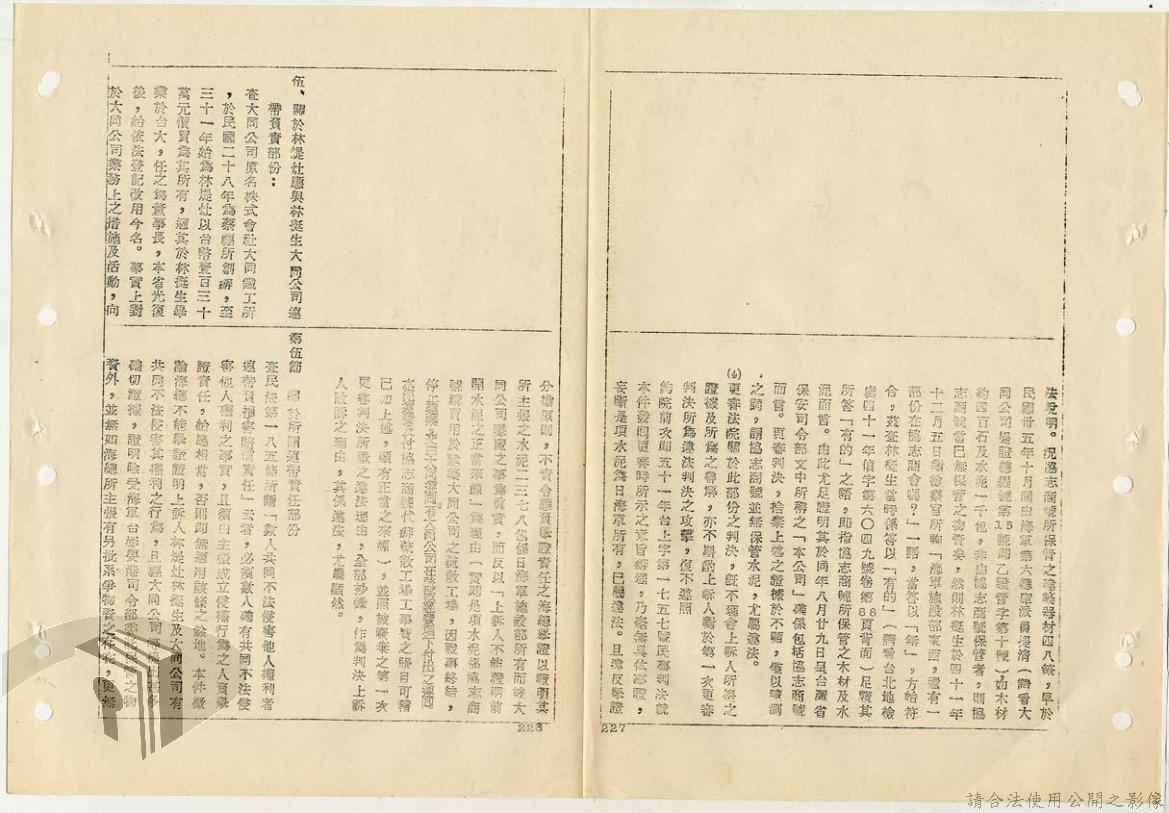 法說明。況協志商號所保管之建築器材四八簍,早於
民國卅五年十月間由海軍第六機庫派員提清(請看大
同公司呈證總編號第15號即乙證管字第十號)如木材
約四百石及水泥一千包,非由協志商號保管者,則協
志商號當已無保管之物資矣,然則林挺生於四十一年
十二月五日對檢察官所詢「海軍施設部東西,還有一
部份在協志商會嗎?」一語,當答以「無」,方始符
合,茲查林挺生當時係答以「有的」(請看台北地檢
處四十一年偵字第六〇四九號卷第88頁背面)足證其
所答「有的」之語,即指協志商號所保管之木材及水
泥而言。由此尤足證明其於同年八月廿九日呈台灣省
保安司令部文中所稱之「本公司」確係包括協志商號
而言。更審判決,捨棄上述之證據於不顧,僅以臆測
之詞,謂協志商號並無保管水泥,尤屬違法。
(4)更審法院關於此部份之判決,既不理會上訴人所舉之
證據及所為之辯解,亦不斟酌上訴人對於第一次更審
判決所為違法判決之攻擊,復不遵照
鈞院前次即五十一年台上字第一五七號民事判決就
本件發回更審時所示之意旨辦理,乃毫無具體事證,
妄斷是項水泥為日海軍所有,已屬違法。且違反舉證
227
分擔原則,不責令應負舉證責任之海總舉證以證明其
所主張之水泥二三七八包係日海軍施設部所有而被大
同公司隱匿之事為真實,而反以「上訴人不能證明前
開水泥之正當來源」為理由(實即是項水泥係協志商
號購買用於建築大同公司之疏散工場,因戰事終結,
停止建築,
水泥
已如上述,顯有正當之來源),並照被廢棄之第一次
更審判決所載之違法理由,全部抄錄,作為判決上訴
人敗訴之理由,其係違法,尤屬顯然。
第伍節 關於所謂連帶責任部份
查民法第一八五條所謂「數人共同不法侵害他人權利者
連帶負損害賠償責任」云者,必須數人確有共同不法侵
害他人權利之事實,且須由主張成立侵權行為之人負舉
證責任,始為相當,否則即無適用該條之餘地。本件被
論海總不能舉證證明上訴人林堤灶林挺生及大同公司有
共同不法侵害其權利之行為,且經大同公司
確切證據,證明除受海軍台澎要港司令部委託保管之物
資外,並無如海總所主張有另批系爭物資之存在,更無
228
伍、關於林堤灶應與林挺生大同公司連
帶負責部份:
查大同公司原名株式會社大同鐵工所
,於民國二十八年為蔡福所創辦,至
三十一年始為林堤灶以台幣壹百三十
萬元價買為其所有,適其於林挺生畢
業於台大,任之為董事長,本省光復
後,始依法登記改用今名。事實上對
於大同公司業務上之措施及活動,向
請合法使用公開之影像